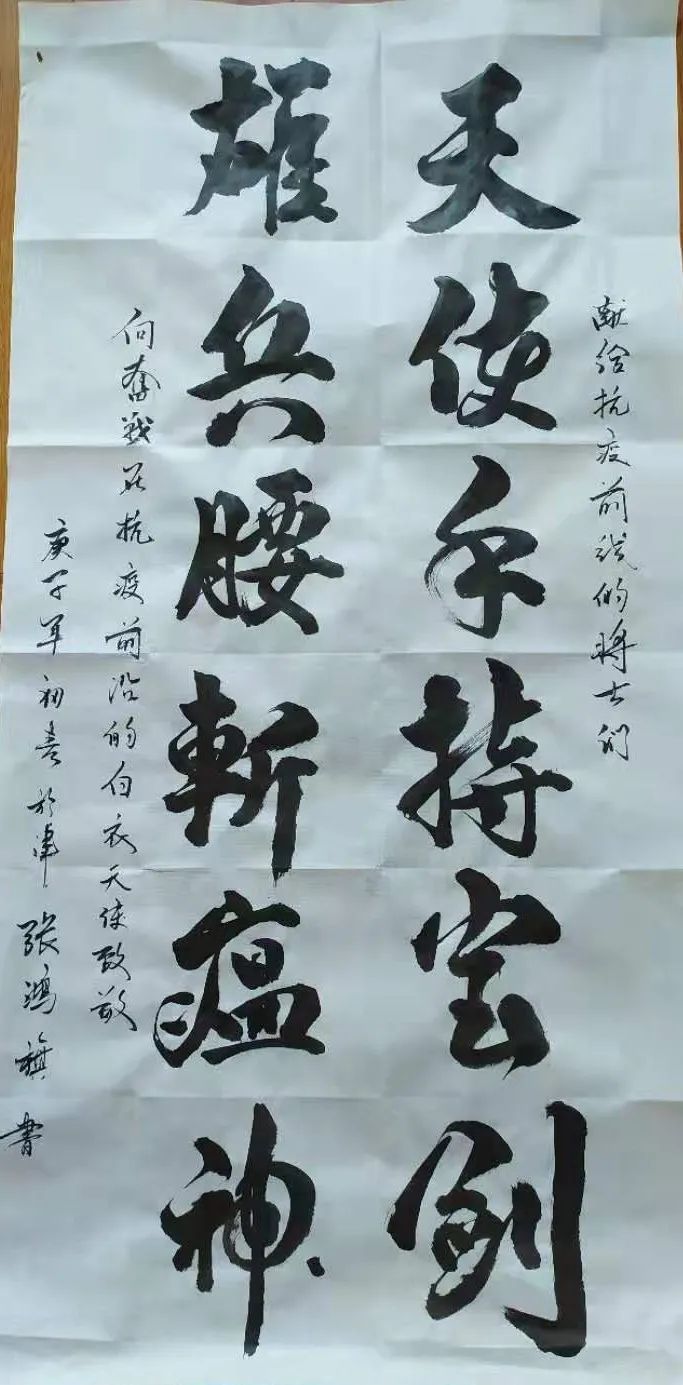 献给抗疫前线的将士们
天使手持宝剑
雄兵腰斬瘟神
向奋战在抗疫前沿的白衣天使致敬
庚子年初春於津 張鴻旗 書